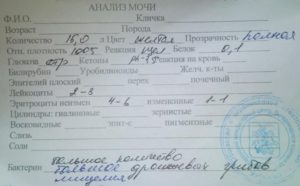 АНАЛИЗ МОЧИ
Ф.И.О. Кличка
Возраст Порода
Количество 15,0 л Цвет желтая Прозрачность полная
Отн. плотность 1005 Реакция Белок 0,1
Глюкоза отр Кетоны Реакция на кровь
Билирубин Уробилиноиды Желч. к-ты
Эпителий плоский перех почечный
Лейкоциты 2-3
Эритроциты неизмен 4-6 измененные 1-1
Цилиндры: гиалиновые зернистые
Восковидные эпит-е пигментные
Слизь
Соли
Бактерии большое количество
большое дрожжевых грибов
мицелия